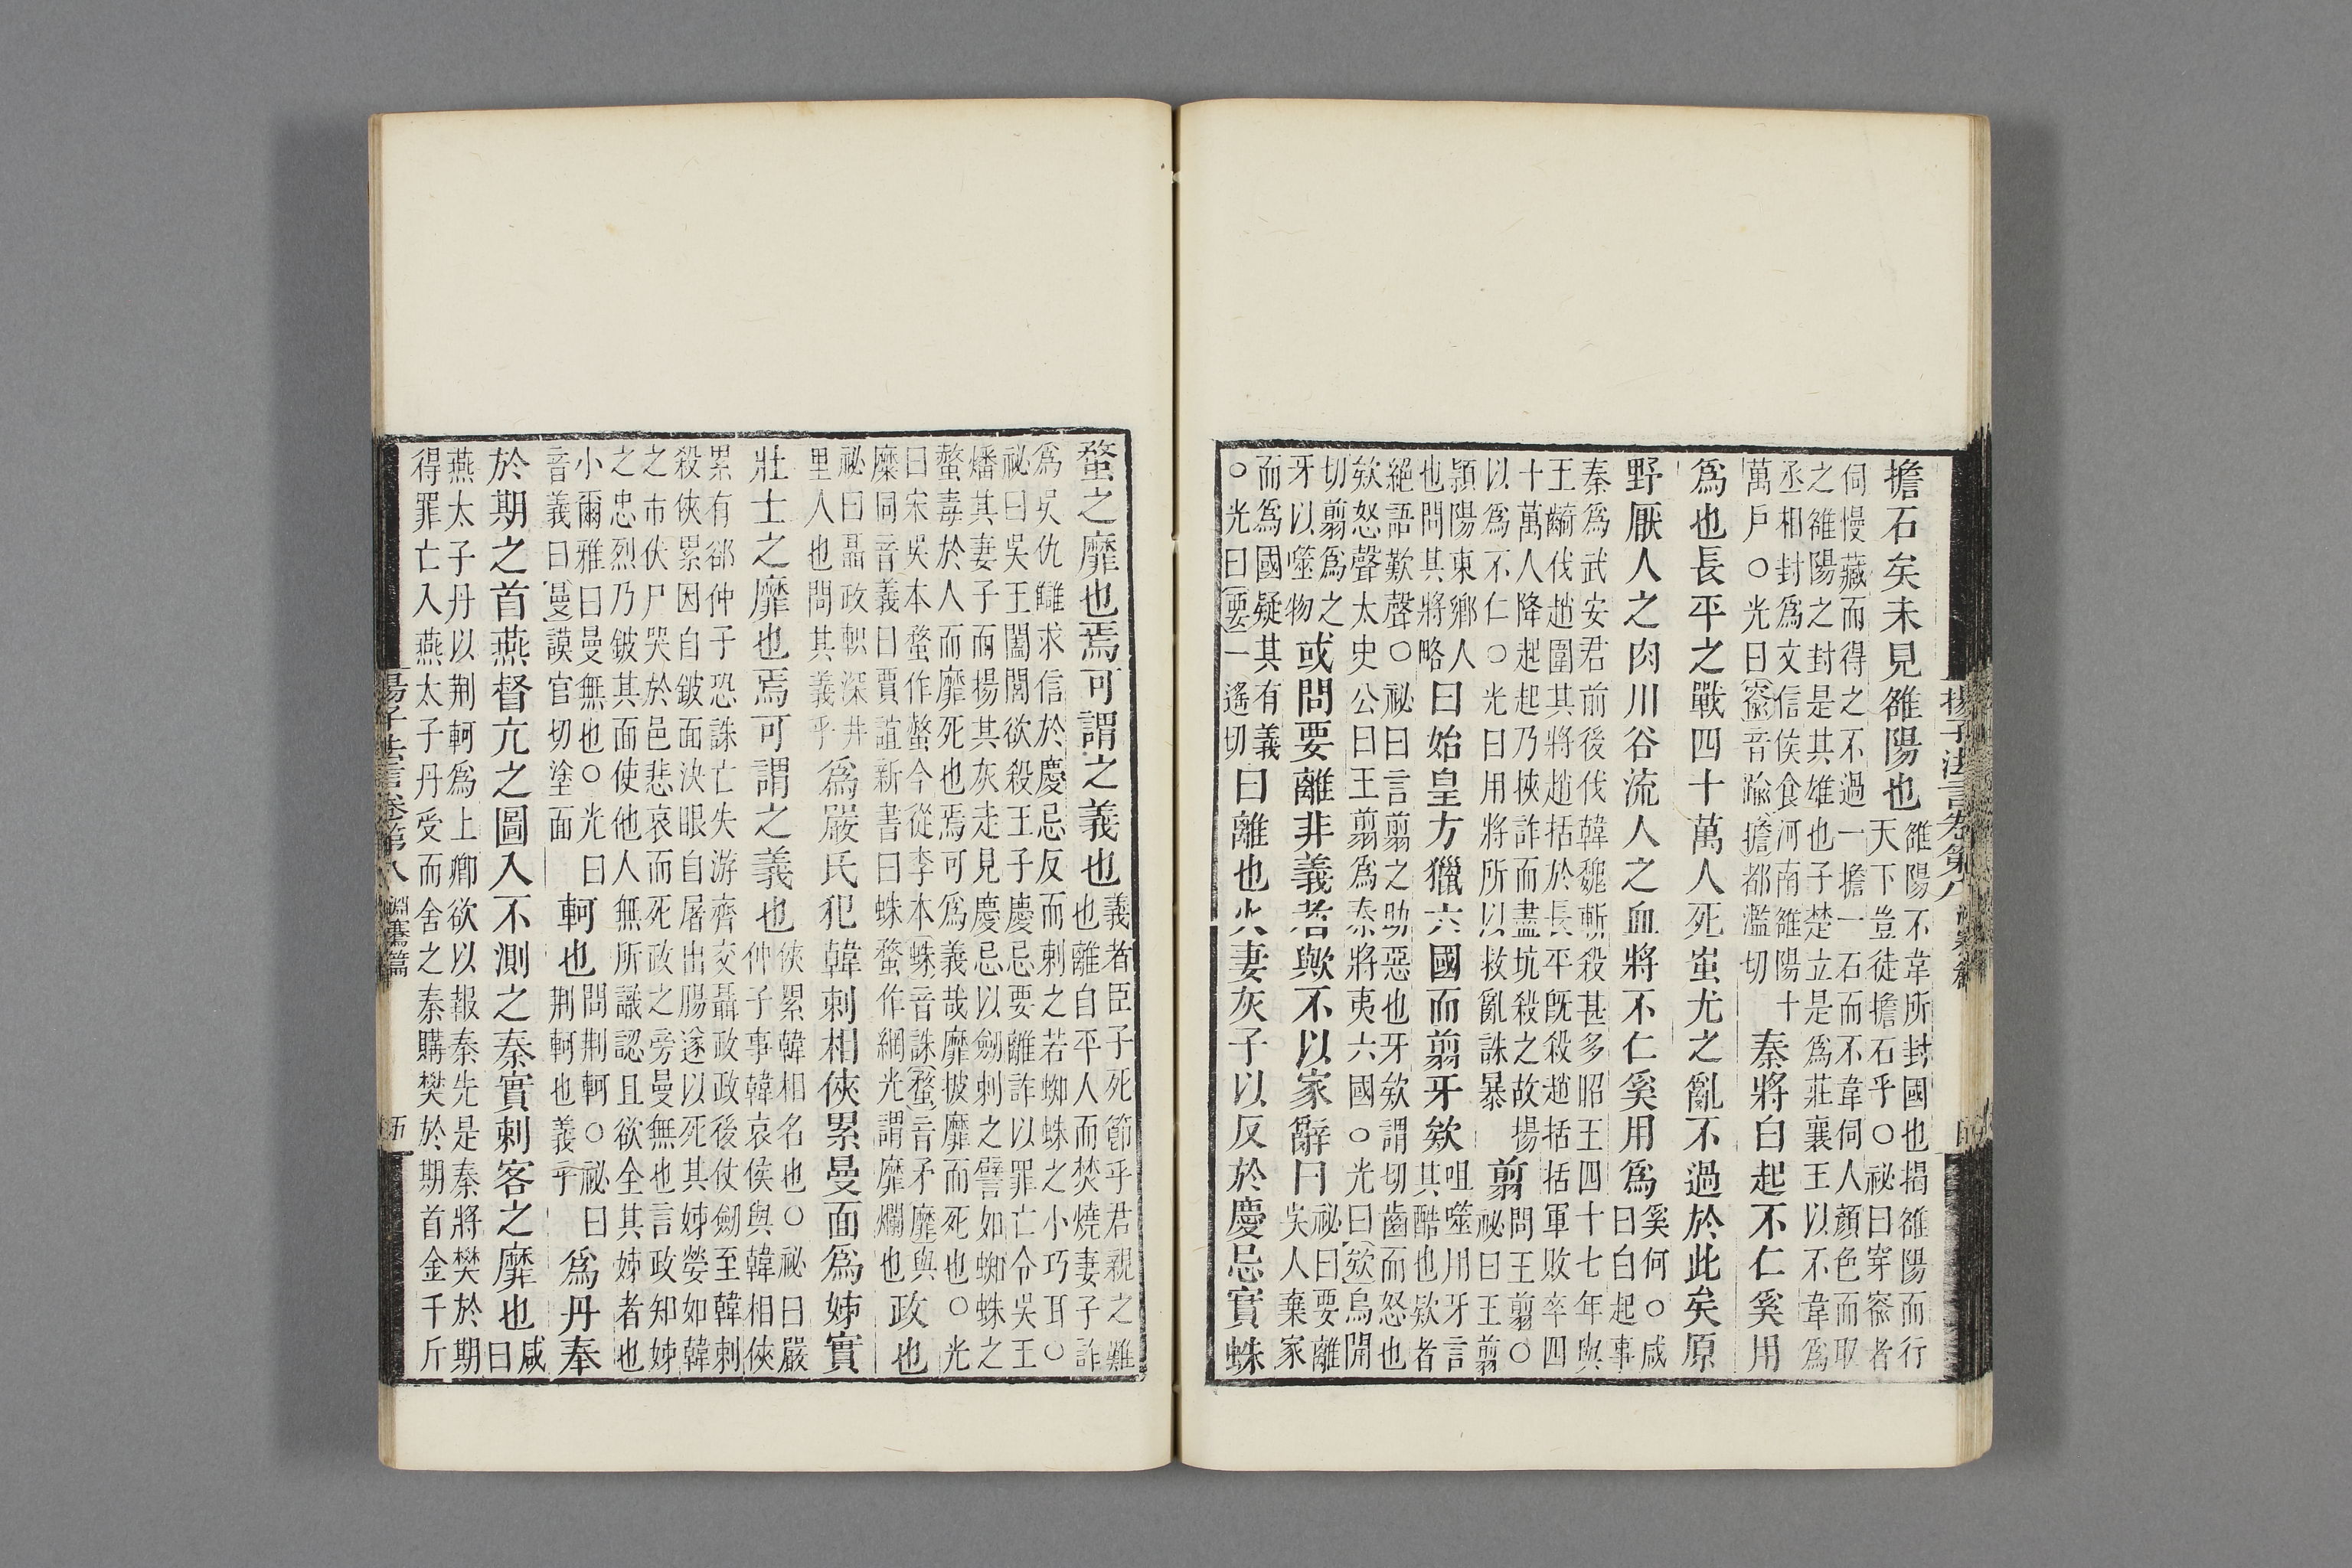 擔石矣未見雒陽也
雒陽不韋所封國也揭雒陽而行
天下豈徒擔石乎○祕曰穿窬者
伺慢藏而得之不過一擔一石而不韋伺人顏色而取
之雒陽之封是其雄也子楚立是爲莊襄王以不韋爲
丞相封爲文信侯食河南雒陽十
萬戶○光曰窬音踰擔都濫切
秦將白起不仁奚用
爲也長平之戰四十萬人死蚩尤之亂不過於此矣原
野厭人之肉川谷流人之血將不仁奚用爲
奚何○咸
曰白起事
秦爲武安君前後伐韓魏斬殺甚多昭王四十七年與
王齮伐趙圍其將趙括於長平旣殺趙括括軍敗卒四
十萬人降起起乃挾詐而盡坑殺之故揚
以爲不仁○光曰用將所以救亂誅暴
翦
問王翦○
祕曰王翦
頴陽東鄉人
也問其將略
曰始皇方獵六國而翦牙欸
咀噬用牙言
其酷也欸者
絕語歎聲○祕曰言翦之助惡也牙欸謂切齒而怒也
欸怒聲太史公曰王翦爲秦將夷六國○光曰欸烏開
切翦爲之
牙以噬物
或問要離非義者歟不以家辭曰
祕曰要離
吳人棄家
而爲國疑其有義
○光曰要一遙切
曰離也火妻灰子以反於慶忌實蛛
揚子法言卷第八
蝥之靡也焉可謂之義也
義者臣子死節乎君親之難
也離自平人而焚燒妻子詐
爲吳仇讎求信於慶忌反而刺之若蜘蛛之小巧耳○
祕曰吳王闔閭欲殺王子慶忌要離詐以罪亡令吳王
燔其妻子而揚其灰走見慶忌以劒刺之譬如蜘蛛之
蝥毒於人而靡死也焉可爲義哉靡披靡而死也○光
曰宋吳本蝥作螫今從李本蛛音誅蝥音矛靡與
糜同音義曰賈誼新書曰蛛蝥作網光謂靡爛也
政也
祕曰聶政軹深井
里人也問其義乎
爲嚴氏犯韓刺相俠累曼面爲姊實
壯士之靡也焉可謂之義也
俠累韓相名也○祕曰嚴
仲子事韓哀侯與韓相俠
累有郤仲子恐誅亡失游齊交聶政政後仗劒至韓刺
殺俠累因自鈹面決眼自屠出腸遂以死其姊嫈如韓
之市伏尸哭於邑悲哀而死政之旁曼無也言政知姊
之忠烈乃鈹其面使他人無所識認且欲全其姊者也
小爾雅曰曼無也○光曰
音義曰曼謨官切塗面
軻也
問荆軻○祕曰
荆軻也義乎
爲丹奉
於期之首燕督亢之圖入不測之秦實刺客之靡也
咸
曰
燕太子丹以荆軻爲上卿欲以報秦先是秦將樊於期
得罪亡入燕太子丹受而舍之秦購樊於期首金千斤
揚子法言卷第八 淵騫篇 五